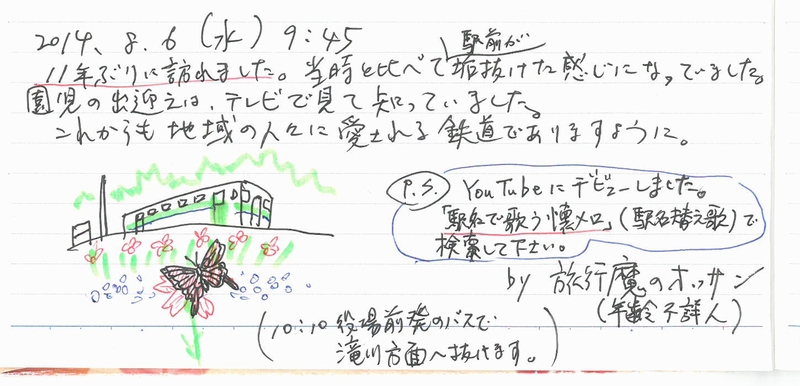 2014. 8. 6 (水) 9:45
駅前が
11年ぶりに訪れました。当時と比べて垢抜けた感じになっていました。
園児の出迎えは、テレビで見て知っていました。
これからも地域の人々に愛される鉄道でありますように。
P.S. YouTubeにデビューしました。
「駅名で歌う懐メロ」(駅名替え歌)で
検索して下さい。
by 旅行魔のオッサン
(年齢不詳人)
(10:10 役場前発のバスで
滝川方面へ抜けます。)